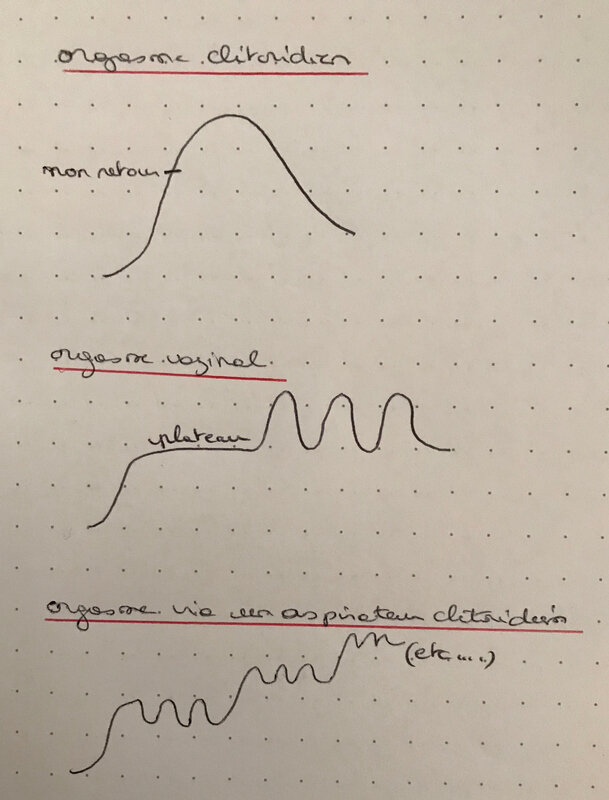 orgasme clitoridien
non retour
orgasme vaginal
plateau
orgasme via un aspirateur clitoridien
(etc....)